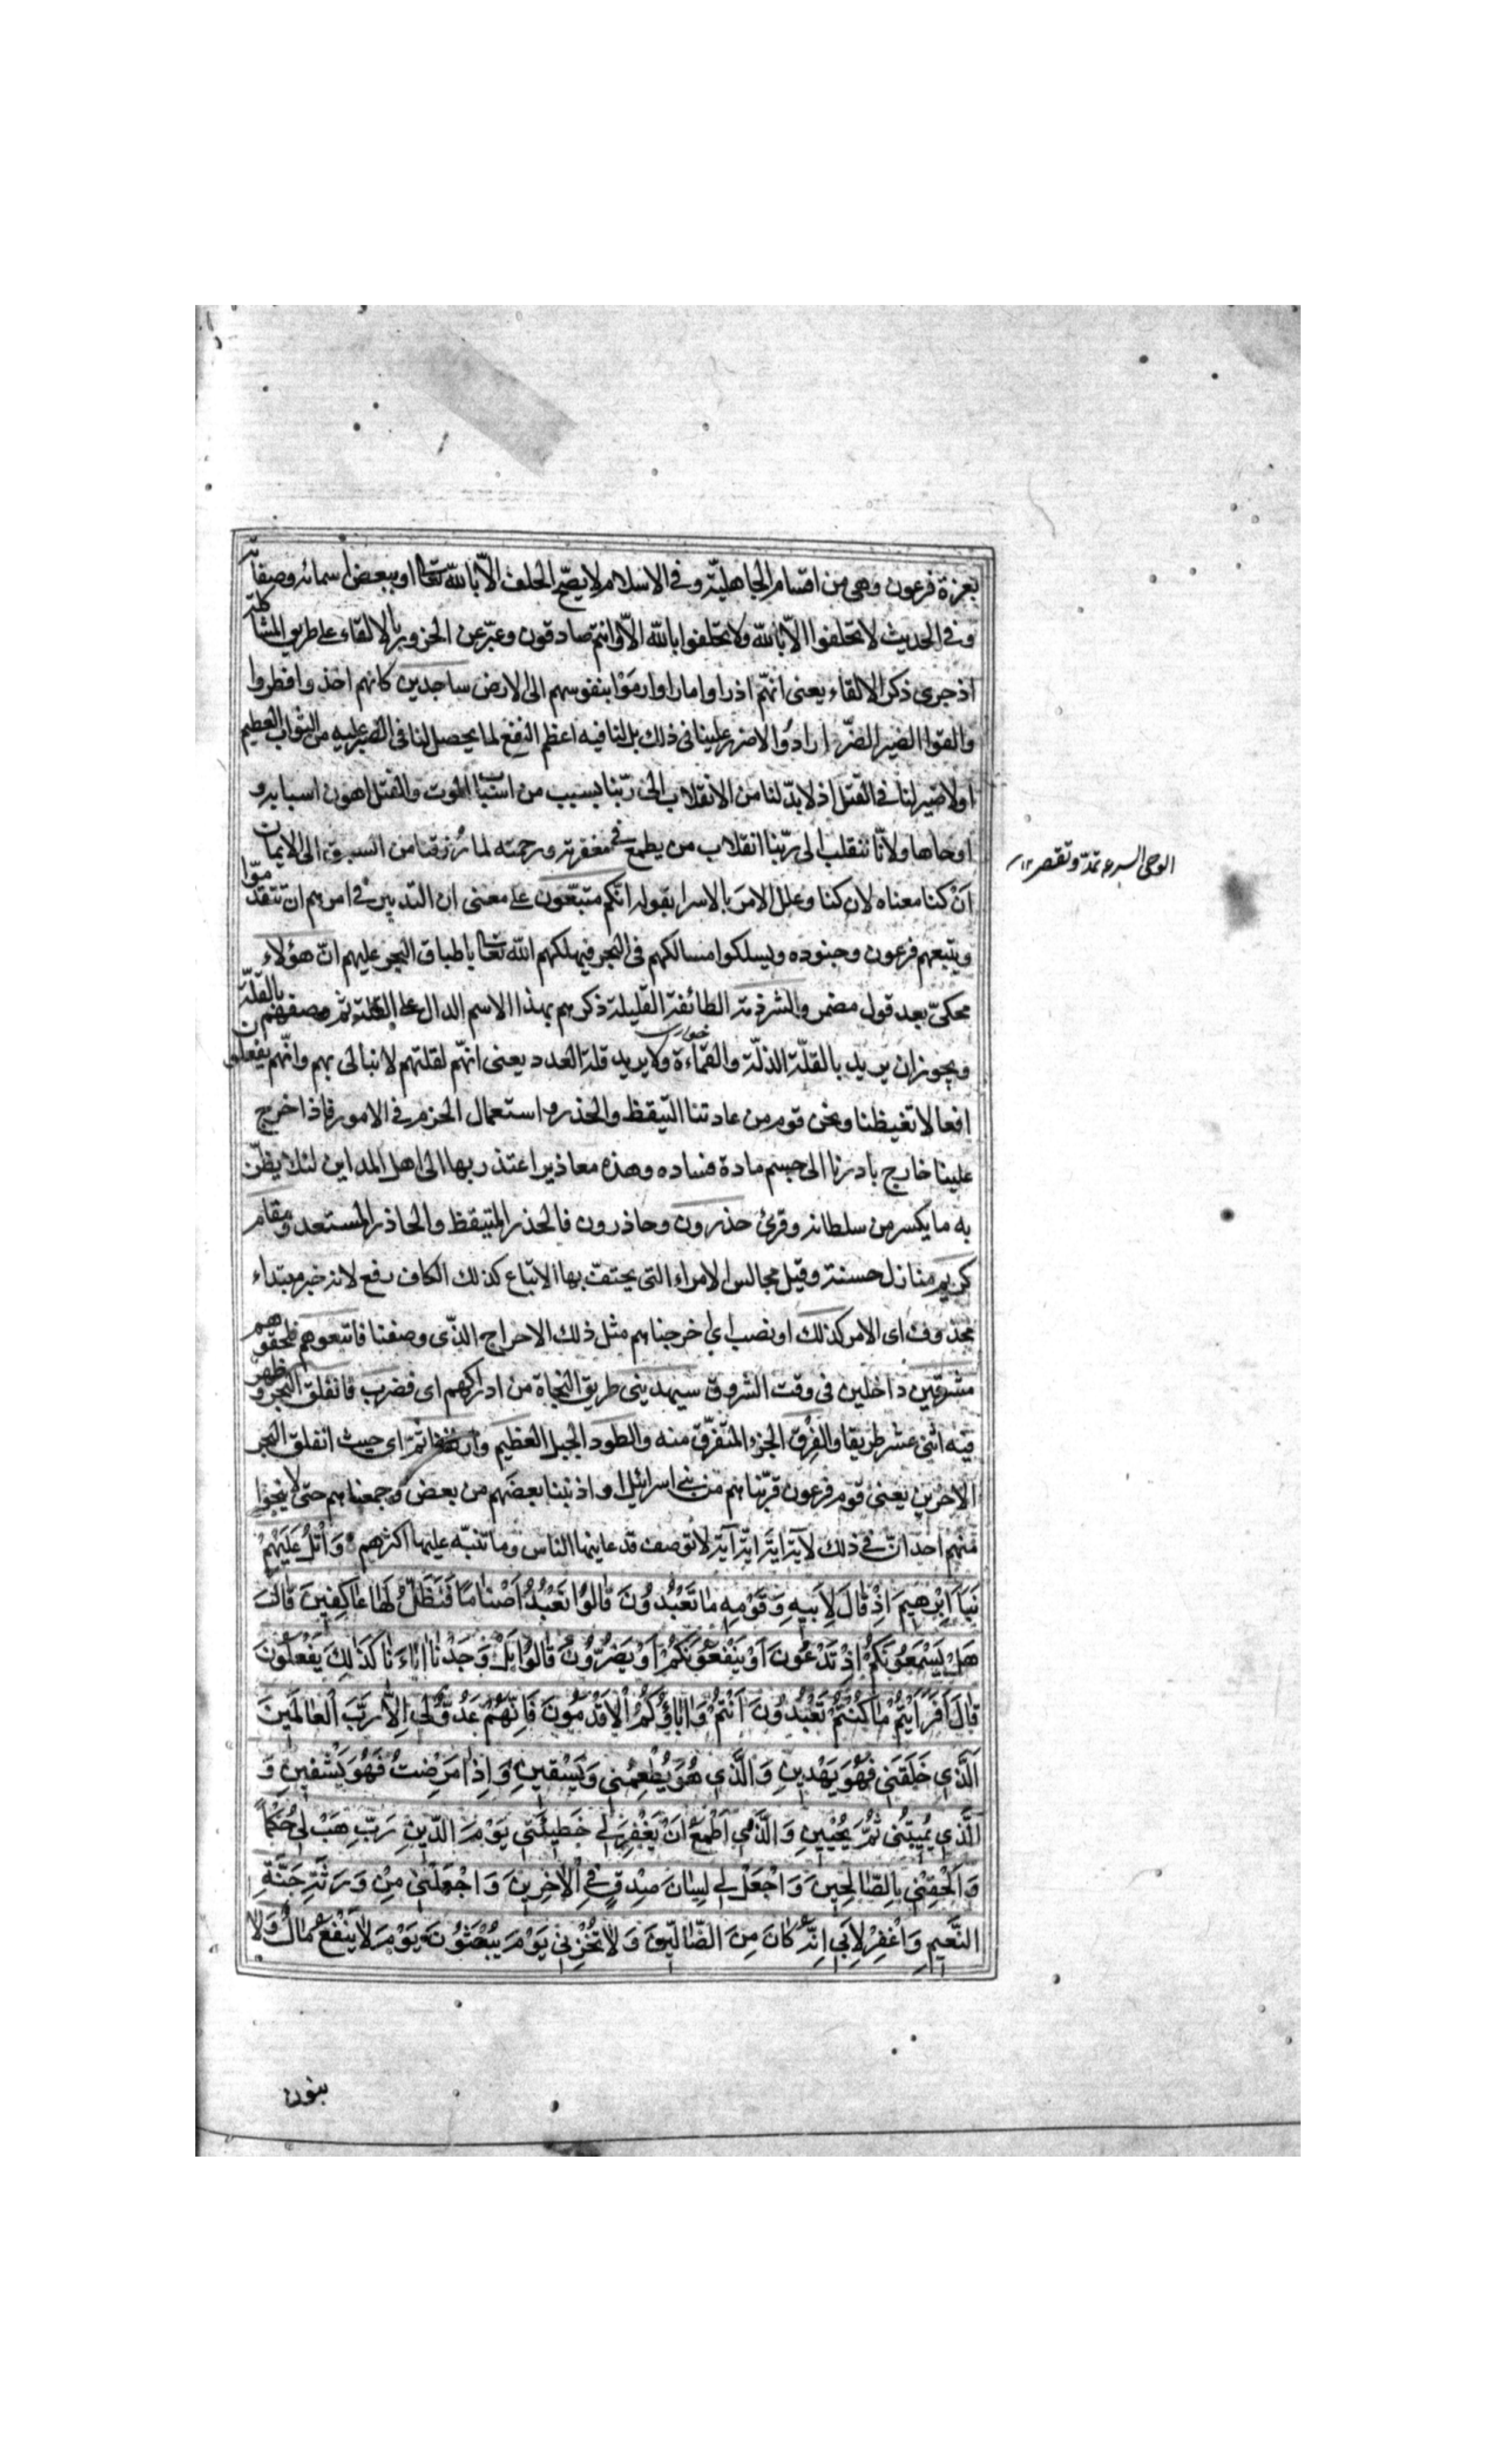 بعزة فرعون وهى من اقسام الجاهليّة وفى الاسلام لا يصحّ الحلف الّا بالله تعا او ببعض اسمائه وصفاته
وفى الحديث لا تحلفوا الّا بالله ولا تحلفوا بالله الّا وانتم صادقون وعبّر عن الخرور بالالقاء على طريق المشاكلة
اذ جرى ذكر الالقاء يعنى انهم اذ راوا ما راوا رمَوْا بنفوسهم الى الارض ساجدين كانهم اخذوا فطرحوا
والقوا الضير الضرّ ارادوا لا ضرر علينا فى ذلك بل لنا فيه اعظم النفع لما يحصل لنا فى الصبر عليه من الثواب العظيم
او لا ضير لنا فى القتل اذ لا بدّ لنا من الانقلاب الى ربّنا بسبب من اسباب الموت والقتل اهون اسبابه و
اوحاها ولانّا ننقلب الى ربّنا انقلاب من يطمع فى مغفرته ورحمته لما رُزقنا من السبق الى الايمان
اَنْ كنا معناه لان كنا وعلل الامرَ بالاسراء بقوله انّكم متّبعون على معنى ان التدبير فى امرهم ان تتقدّموا
ويتبعهم فرعون وجنوده ويسلكوا مسالكهم فى البحر فيهلكهم الله تعا باطباق البحر عليهم انّ هؤلاء
محكىّ بعد قول مضمر والشرذمة الطائفة القليلة ذكرهم بهذا الاسم الدال على القلة ثم وصفهم بالقلّة
ويجوز ان يريد بالقلّة الذلّة والقماءة ولا يريد قلة العدد يعنى انهّم لقلتهم لا نبالى بهم وانّهم يفعلون
خوارى
افعالا تغيظنا ونحن قوم من عادتنا التيقظ والحذر واستعمال الحزم فى الامور فاذا خرج
علينا خارج بادرنا الى حسم مادة فساده وهذه معاذير اعتذر بها الى اهل المداين لئلا يظنّ
به ما يكسر من سلطانه وقرئ حذرون وحاذرون فالحذر المتيقظ والحاذر المستعد ومقام
كريم منازل حسنة وقيل مجالس الامراء التى يحتفّ بها الاتباع كذلك الكاف رفع لانه خبر مبتداء
محذوف اى الامر كذلك او نصب اى اخرجناهم مثل ذلك الاخراج الذّى وصفنا فاتبعوهم فلحقوهم
مشرقين داخلين فى وقت الشروق سيهدينى طريق النجاة من ادراكهم اى فضرب فانفلق البحر وظهر
فيه اثنى عشر طريقا والفِرْق الجزء المتفرّق منه والطود الجبل العظيم وازلفنا ثمّ اى حيث انفلق البحر
الاخرين يعنى قوم فرعون قرّبناهم من بنى اسرائيل او ادنينا بعضَهم من بعض وجمعناهم حتى لا ينجوا
منهم احد انّ فى ذلك لآية اية اية لا توصف قد عاينها الناس وما تنبّه عليها اكثرهم وَاتْلُ عَلَيْهِمْ
نَبَأَ اِبْرٰهِيمَ اِذْ قَالَ لِاَبِيهِ وَقَوْمِهِ مَا تَعْبُدُونَ قَالُوا نَعْبُدُ اَصْنَامًا فَنَظَلُّ لَهَا عَاكِفِينَ قَالَ
هَلْ يَسْمَعُونَكُمْ اِذْ تَدْعُونَ اَوْ يَنْفَعُونَكُمْ اَوْ يَضُرُّونَ قَالُوا بَلْ وَجَدْنَا اٰبَاءَنَا كَذٰلِكَ يَفْعَلُونَ
قَالَ اَفَرَاَيْتُمْ مَا كُنْتُمْ تَعْبُدُونَ اَنْتُمْ وَاٰبَاؤُكُمُ الْاَقْدَمُونَ فَاِنَّهُمْ عَدُوٌّ لِى اِلَّا رَبَّ الْعَالَمِينَ
اَلَّذِى خَلَقَنِى فَهُوَ يَهْدِينِ وَالَّذِى هُوَ يُطْعِمُنِى وَيَسْقِينِ وَاِذَا مَرِضْتُ فَهُوَ يَشْفِينِ وَ
الَّذِى يُمِيتُنِى ثُمَّ يُحْيِينِ وَالَّذِى اَطْمَعُ اَنْ يَغْفِرَ لِى خَطِيئَتِى يَوْمَ الدِّينِ رَبِّ هَبْ لِى حُكْمًا
وَاَلْحِقْنِى بِالصَّالِحِينَ وَاجْعَلْ لِى لِسَانَ صِدْقٍ فِى الْاٰخِرِينَ وَاجْعَلْنِى مِنْ وَرَثَةِ جَنَّةِ
النَّعِيمِ وَاغْفِرْ لِاَبِى اِنَّهُ كَانَ مِنَ الضَّالِّينَ وَلَا تُخْزِنِى يَوْمَ يُبْعَثُونَ يَوْمَ لَا يَنْفَعُ مَالٌ وَلَا
الوحى السرعة تمدّ وتقصر ١٢
بنون